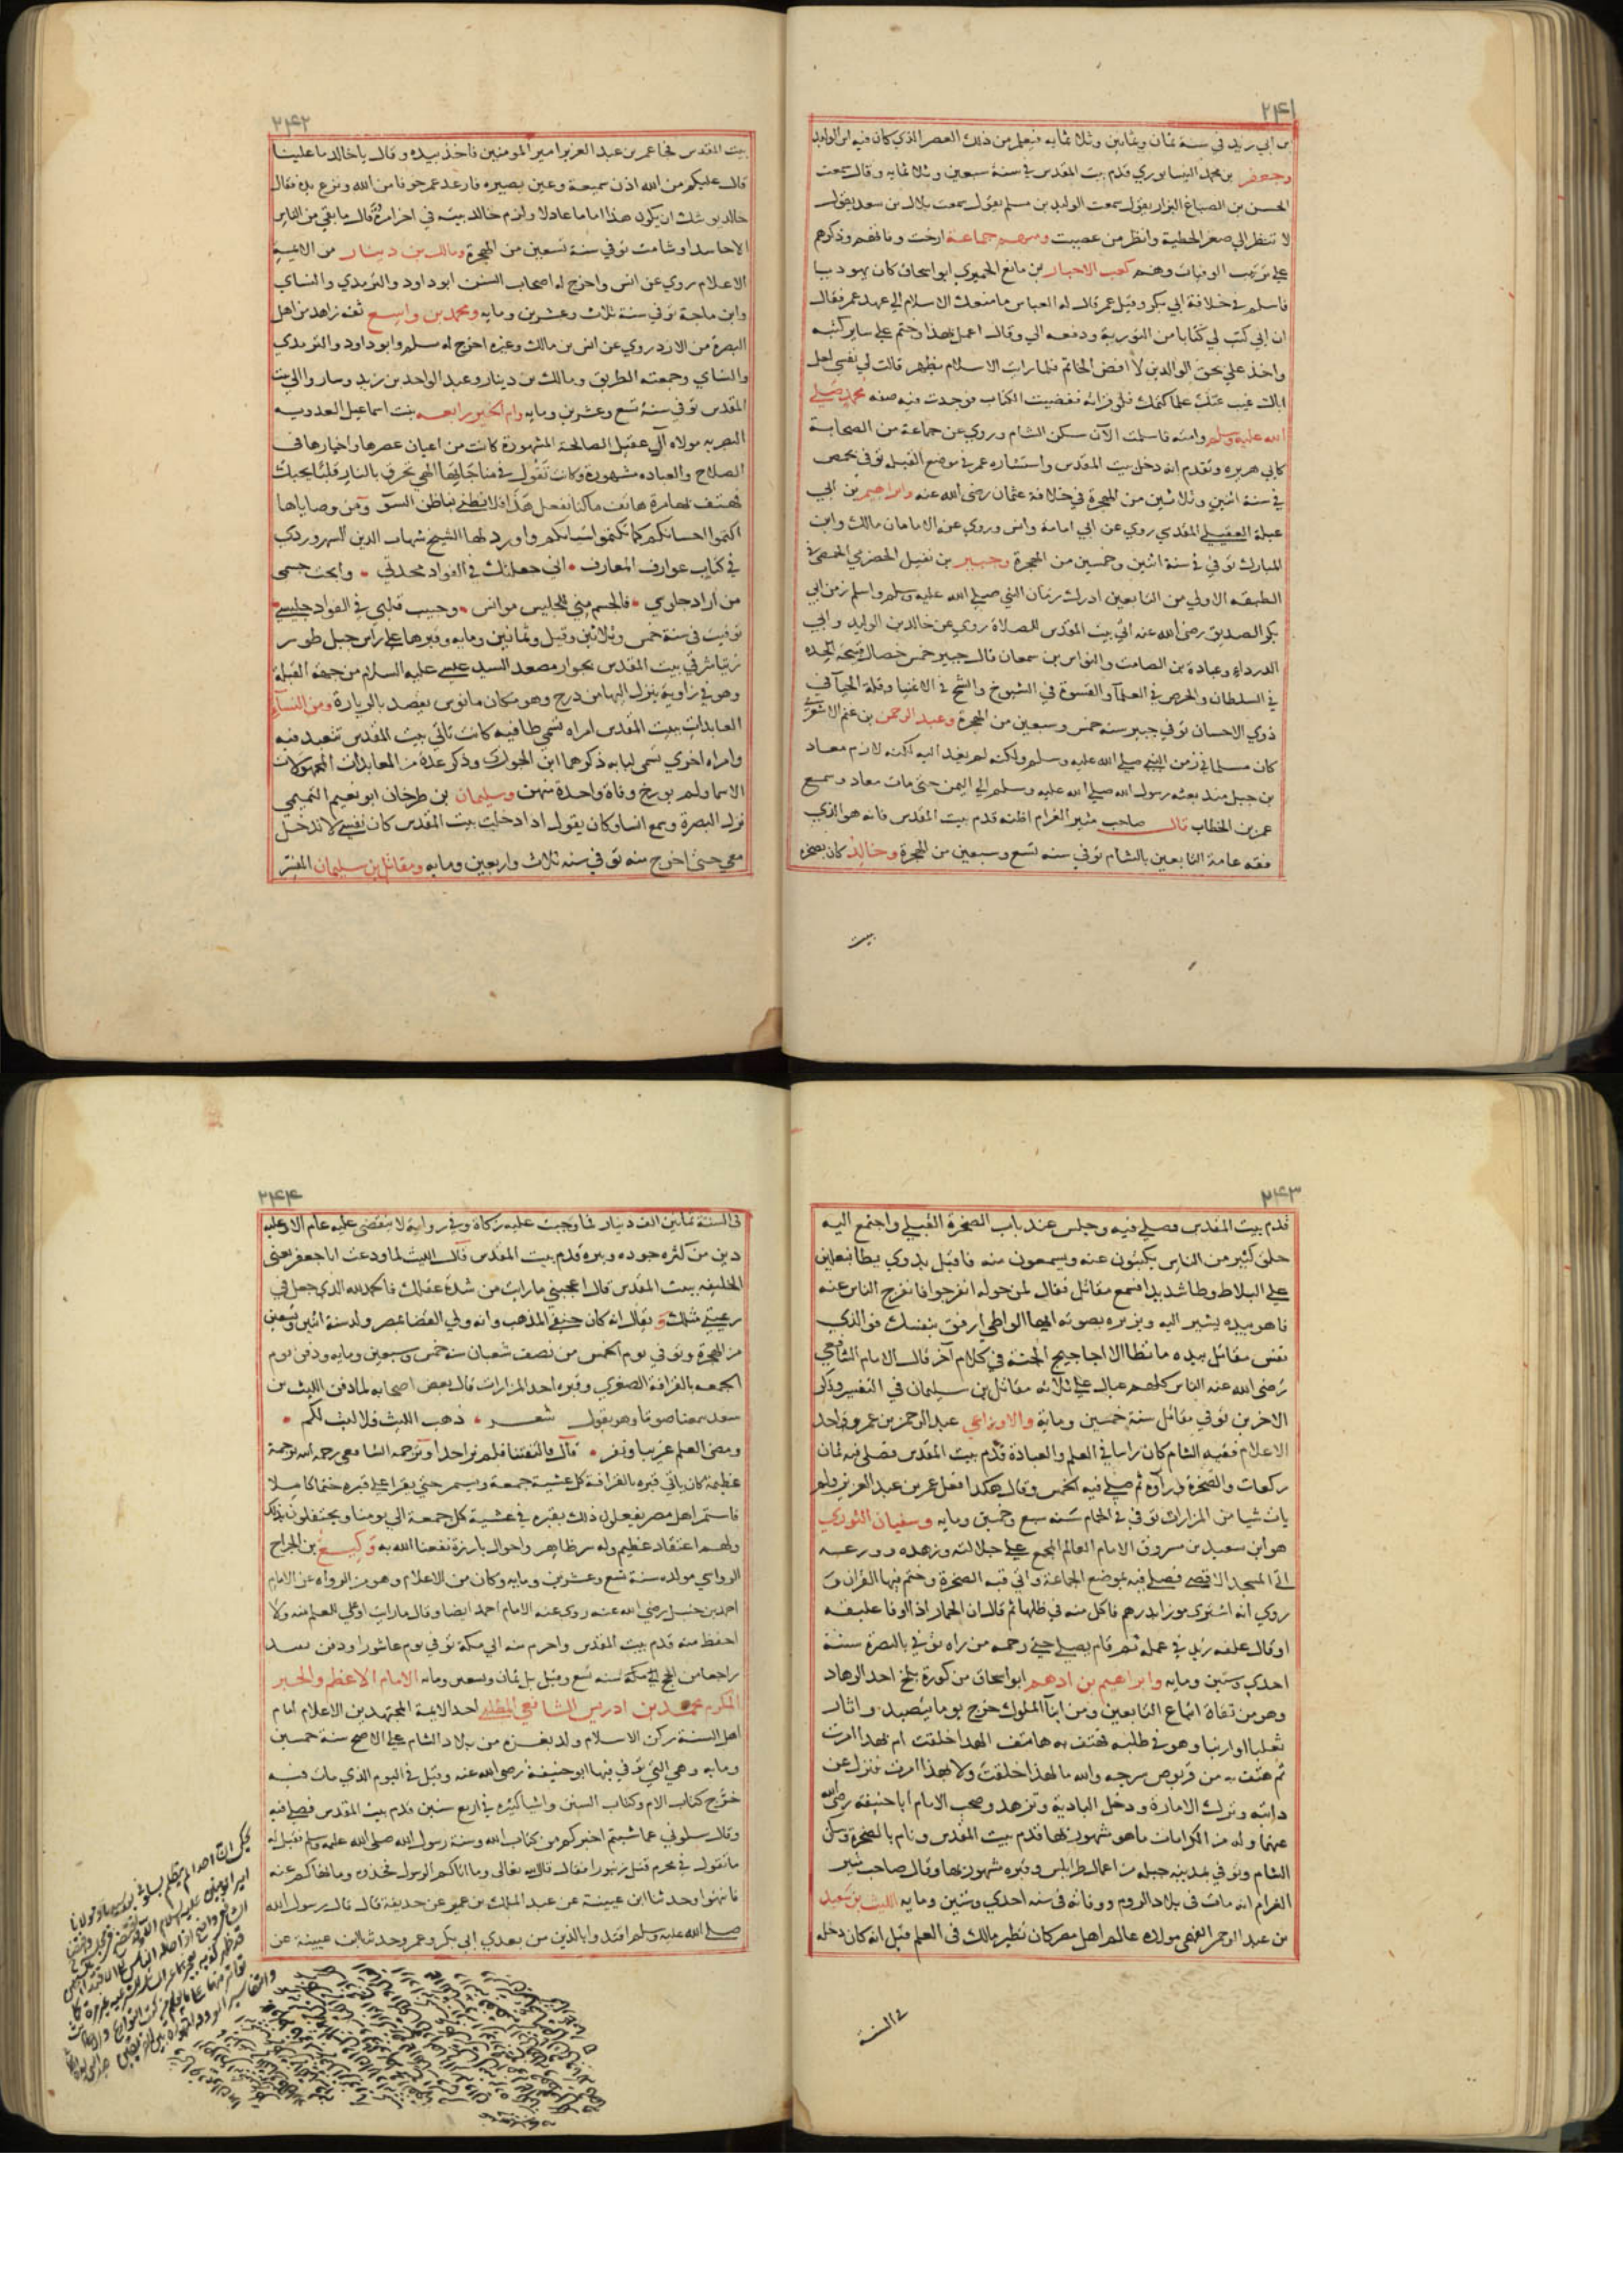 ٢٤١
بن ابي زيد في سنة ثمان وثمانين وثلاثمايه فيعلم من ذلك العصر الذي كان فيه ابن الوليد
وجعفر بن محمد النيسابوري قدم بيت المقدس في سنة سبعين وثلاثمايه وقال سمعت
الحسن بن الصباغ البزار يقول سمعت الوليد بن مسلم يقول سمعت بلال بن سعد يقول
لا تنظر الى صغر الخطية وانظر من عصيت ومنهم جماعة ارخت وفاتهم وذكرهم
على ترتيب الوفيات وهم كعب الاحبار بن مانع الحميري ابو اسحاق كان يهوديا
فاسلم في خلافة ابي بكر وقيل عمر قال له العباس ما منعك الاسلام الى عهد عمر فقال
ان ابي كتب لي كتابا من التورية ودفعه الي وقال اعمل بهذا وختم على ساير كتبه
واخذ علي بحق الوالدين لا افض الخاتم فلما رايت الاسلام يظهر قالت لي نفسي لعل
اباك غيب عنك علما كتمك فلو قراته ففضيت الكتاب فوجدت فيه صفة محمد صلى
الله عليه وسلم وامته فاسلمت الآن سكن الشام وروي عن جماعة من الصحابة
كابي هريره وتقدم انه دخل بيت المقدس واستشاره عمر في موضع القبلة توفي بحمص
في سنة اثنين وثلاثين من الهجرة في خلافة عثمان رضى الله عنه وابراهيم بن ابي
عبلة العقيلي المقدسي روي عن ابي امامة وانس وروي عن الامامان مالك وابن
المبارك توفي في سنة اثنين وخمسين من الهجرة وجبير بن نفيل الحضرمي الحمصي في
الطبقه الاولي من التابعين ادرك زمان النبي صلى الله عليه وسلم واسلم زمن ابي
بكر الصديق رضى الله عنه اتي بيت المقدس للصلاة روي عن خالد بن الوليد وابي
الدرداء وعبادة بن الصامت والنواس بن سمعان قال جبير خمس خصال قبيحة الحده
في السلطان والحرص في العلمآ والفسوق في الشيوخ والشح في الاغنيا وقلة الحيآ في
ذوي الاحسان توفي جبير سنه خمس وسبعين من الهجرة وعبد الرحمن بن غنم الاشعري
كان مسلما في زمن النبي صلى الله عليه وسلم ولكنه لم يفد اليه لكنه لازم معاد
بن جبل منذ بعثه رسول الله صلى الله عليه وسلم الى اليمن حتى مات معاد وسمع
عمر بن الخطاب قال صاحب مثير الغرام اظنه قدم بيت المقدس فانه هو الذي
فقه عامة التابعين بالشام توفي سنه تسع وسبعين من الهجرة وخالد كان بصخرة
بيت
٢٤٢
بيت المقدس فجا عمر بن عبد العزيز امير المومنين فاخذ بيده وقال يا خالد ما علينا
قال عليكم من الله اذن سميعة وعين بصيره فارعد عمر خوفا من الله ونزع يده فقال
خالد يوشك ان يكون هذا اماما عادلا ولزم خالد بيته في اخر امره وقال ما بقي من الناس
الا حاسد او شامت توفي سنة تسعين من الهجرة ومالك بن دينار من الائمة
الاعلام روي عن انس واخرج له اصحاب السنن ابو داود والترمدي والنساي
وابن ماجة توفي سنة ثلاث وعشرين ومايه ومحمد بن واسع ثقه زاهد من اهل
البصرة من الازد روي عن انس بن مالك وغيره اخرج له مسلم وابو داود والترمدي
والنساي وجمعته الطريق ومالك بن دينار وعبد الواحد بن زيد وساروا الى بيت
المقدس توفي سنة تسع وعشرين ومايه وام الخير رابعه بنت اسماعيل العدويه
البصريه مولاة آل عقيل الصالحة المشهورة كانت من اعيان عصرها واخبارها في
الصلاح والعباده مشهورة وكانت تقول في مناجاتها الهي تحرق بالنار قلبا يحبك
فهتف لها مرة هاتف ما كنا نفعل هذا فلا تظني بنا ظن السوّ ومن وصاياها
اكتموا احسانكم كما تكتموا اسيانكم واورد لها الشيخ شهاب الدين السهروردي
في كتاب عوارف المعارف • اني جعلتك في الفواد محدثي • وابحت جسمى
من اراد جلوسي • فالجسم مني للجليس موانس • وحبيب قلبي في الفواد جليسي
توفيت في سنة خمس وثلاثين وقيل وثمانين ومايه وقبرها على راس جبل طور
زيتا شرقي بيت المقدس بجوار مصعد السيد عيسى عليه السلام من جهة القبلة
وهو في زاوية ينزل اليها من درج وهو مكان مانوس يقصد بالزيارة ومن النساء
العابدات ببيت المقدس امراه تسمي طافيه كانت تاتي بيت المقدس تتعبد فيه
وامراه اخري تسمى لبابه ذكرهما ابن الجوزي وذكر عدة من العابدات المجهولات
الاسما ولم يورخ وفاة واحدة منهن وسليمان بن طرخان ابو نعيم التميمي
نزل البصرة وسمع انسا وكان يقول اذا دخلت بيت المقدس كان نفسي لا تدخل
معي حتى اخرج منه توفي سنه ثلاث واربعين ومايه ومقاتل بن سليمان المفسر
٢٤٣
قدم بيت المقدس فصلي فيه وجلس عند باب الصخرة القبلي واجتمع اليه
خلق كثير من الناس يكتبون عنه ويسمعون منه فاقبل بدوي يطا بنعلين
على البلاط وطا شديدا فسمع مقاتل فقال لمن حوله انفرجوا فانفرج الناس عنه
فاهوي بيده يشير اليه ويزبره بصوته ايها الواطي ارفق بنفسك فوالذي
نفس مقاتل بيده ما تطا الا اجاجيج الجنة في كلام آخر قال الامام الشافعي
رضى الله عنه الناس كلهم عيال على ثلاثه مقاتل بن سليمان في التفسير وذكر
الاخرين توفي مقاتل سنة خمسين وماية والاوزاعي عبد الرحمن بن عمرو واحد
الاعلام فقيه الشام كان راسا في العلم والعبادة قدم بيت المقدس فصلى فيه ثمان
ركعات والصخرة ورآوه ثم صلى فيه الخمس وقال هكدا فعل عمر بن عبد العزيز ولم
يات شيا من المزارات توفي في الحمام سنة سبع وخمسين ومايه وسفيان الثوري
هو ابن سعيد بن مسروق الامام العالم المجمع على جلالته وزهده وورعه
اتي المسجد الاقصى فصلي فيه بموضع الجماعة واتي قبه الصخرة وختم فيها القران و
روي انه اشتري موزا بدرهم فاكل منه في ظلها ثم قال ان الحمار اذا اوفا عليقه
او قال علفه زيد في عمله ثم قام يصلي حتى رحمه من راه توفي بالبصرة سنة
احدي وستين ومايه وابراهيم بن ادهم ابو اسحاق من كورة بلخ احد الزهاد
وهو من ثقاة اتباع التابعين ومن ابنآ الملوك خرج يوما يتصيد واثار
ثعلبا او ارنبا وهو في طلبه فهتف به هاتف الهدا خلقت ام بهدا امرت
ثم هتف به من قربوص سرجه والله ما لهذا خلقت ولا بهذا امرت فنزل عن
دابته وترك الامارة ودخل البادية وتزهد وصحب الامام ابا حنيفه رضى الله
عنهما وله من الكرامات ما هو مشهور بها قدم بيت المقدس ونام بالصخرة وسكن
الشام وتوفي بمدينه جبله من اعمال طرابلس وقبره مشهور بها وقال صاحب مثير
الغرام انه مات في بلاد الروم ووفاته في سنه احدي وستين ومايه الليث بن سعيد
بن عبد الرحمن الفهمي مولاه عالم اهل مصر كان نظير مالك في العلم قيل انه كان دخله
في السنة
٢٤٤
في السنة ثمانين الف دينار فما وجبت عليه زكاة وفي رواية لا ينقضى عليه عام الا وعليه
دين من كثره جوده وبره قدم بيت المقدس قال الليث لما ودعت ابا جعفر يعني
الخليفه ببيت المقدس قال اعجبني ما رايت من شدة عقلك فالحمد لله الذي جعل في
رعيتي مثلك ويقال انه كان حنفي المذهب وانه ولي القضا بمصر ولد سنة اثنين وتسعين
من الهجرة وتوفي يوم الخميس من نصف شعبان سنه خمس وسبعين ومايه ودفن يوم
الجمعه بالقرافة الصغري وقبره احد المزارات قال بعض اصحابه لما دفن الليث بن
سعد سمعنا صوتا وهو يقول شعر • ذهب الليث فلا ليث لكم •
ومضى العلم غريبا وقبر • قال فالتفتنا فلم نر احدا وترجمه الشافعي رحمه الله ترجمة
عظيمة كان ياتي قبره بالقرافة كل عشية جمعة ويستمر حتى يقرا على قبره ختما كاملا
فاستمر اهل مصر يفعلون ذلك بقبره في عشية كل جمعة الى يومنا ويحتفلون بذلك
ولهم اعتقاد عظيم وله سر ظاهر واحوال بارزة نفعنا الله به وكيع بن الجراح
الرواسي مولده سنة تسع وعشرين ومايه وكان من الاعلام وهو من الرواه عن الامام
احمد بن حنبل رضي الله عنه روي عنه الامام احمد ايضا وقال ما رايت اوعي للعلم منه ولا
احفظ منه قدم بيت المقدس واحرم منه الى مكة توفي يوم عاشورا ودفن بفيد
راجعا من الحج الى مكة سنه تسع وقيل بل ثمان وتسعين ومايه الامام الاعظم والحبر
المكرم محمد بن ادريس الشافعي المطلبي احد الايمة المجتهدين الاعلام امام
اهل السنة ركن الاسلام ولد بغزه من بلاد الشام على الاصح سنة خمسين
ومايه وهي التي توفي فيها ابو حنيفة رضي الله عنه وقيل في اليوم الذي مات فيه
خرّج كتاب الام وكتاب السنن واشيا كثيره في اربع سنين قدم بيت المقدس فصلى فيه
وقال سلوني عما شيتم اخبركم من كتاب الله وسنة رسول الله صلى الله عليه وسلم فقيل له
ما تقول في محرم قتل زنبورا فقال قال الله تعالى وما اتاكم الرسول فخدوه وما نهاكم عنه
فانتهوا وحدثنا ابن عيينة عن عبد الملك بن عمير عن حديفة قال قال رسول الله
صلى الله عليه وسلم اقتدوا بالذين من بعدي ابي بكر وعمر وحدثنا ابن عيينة عن